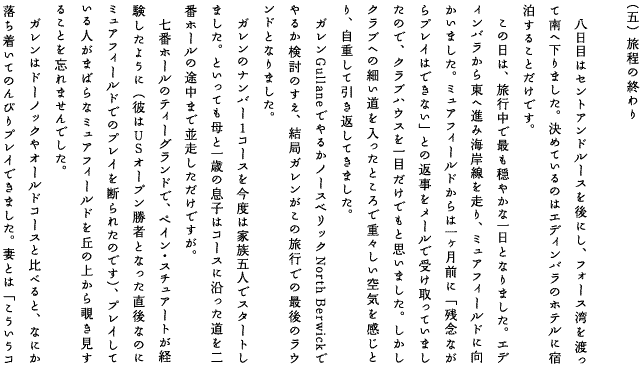 （五）旅程の終わり
八日目はセントアンドルースを後にし、フォース湾を渡っ
て南へ下りました。決めているのはエディンバラのホテルに宿
泊することだけです。
この日は、旅行中で最も穏やかな一日となりました。エデ
ィンバラから東へ進み海岸線を走り、ミュアフィールドに向
かいました。ミュアフィールドからは一ヶ月前に「残念なが
らプレイはできない」との返事をメールで受け取っていまし
たので、クラブハウスを一目だけでもと思いました。しかし
クラブへの細い道を入ったところで重々しい空気を感じと
り、自重して引き返してきました。
ガレンGullaneでやるかノースベリックNorth Berwickで
やるか検討のすえ、結局ガレンがこの旅行での最後のラウ
ンドとなりました。
ガレンのナンバー1コースを今度は家族五人でスタートし
ました。といっても母と一歳の息子はコースに沿った道を二
番ホールの途中まで並走しただけですが。
七番ホールのティーグランドで、ペイン・スチュアートが経
験したように（彼はUSオープン勝者となった直後なのに
ミュアフィールドでのプレイを断られたのです）、プレイして
いる人がまばらなミュアフィールドを丘の上から覗き見す
ることを忘れませんでした。
ガレンはドーノックやオールドコースと比べると、なにか
落ち着いてのんびりプレイできました。妻とは「こういうコ